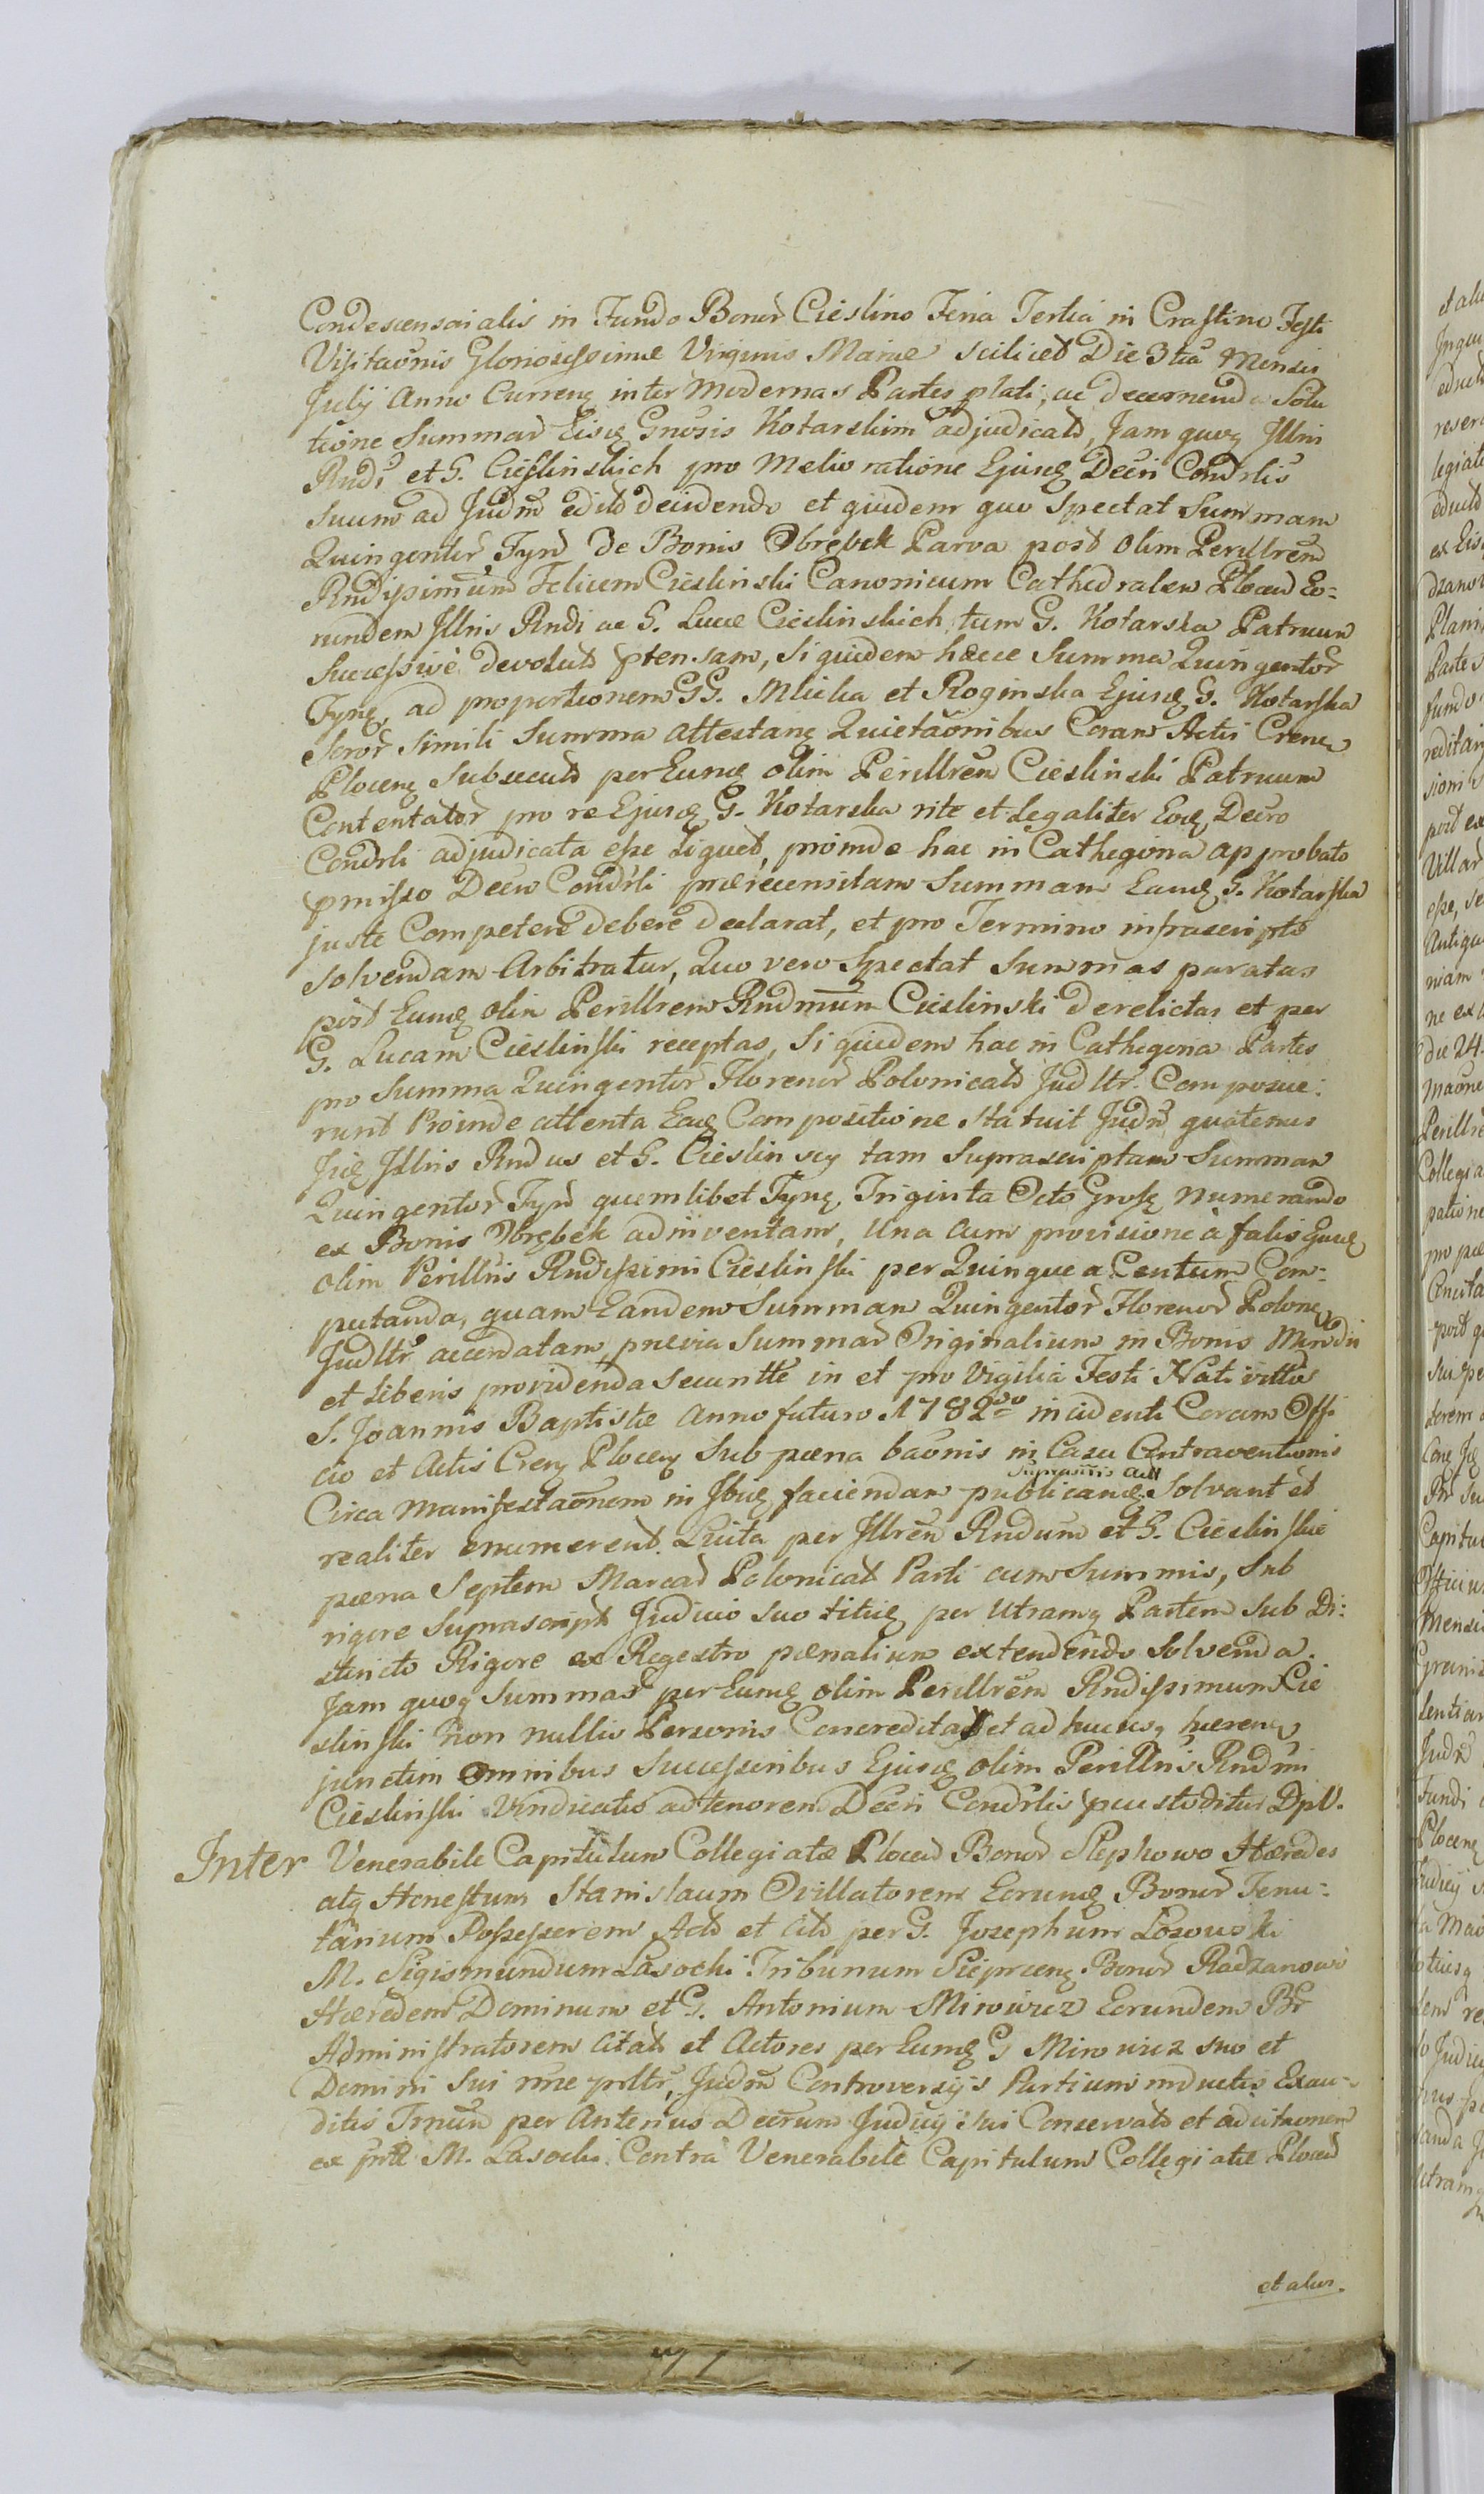 Condescensorialis in Fundo Bonor Cieslino Feria Tertia in Crastino Festi
Visitaonis Gloriosissimæ Virginis Mariæ scilicet Die 3tia Mensis
Julij Anno Curreng inter Modernas Partes plati, ac decernenda Solu
tione Summar Eisq Gnosis Kotarskim adjudicatd, Jam quoq Jllris
Rndi et G. Cieslinskich pro Melio ratione Ejusq Decri Condrlis
Suum ad Judm edito decidendo et quidem quo Spectat Summam
Quingentor Fynd De Bonis Obrębek Parva post olim Perillrem
Rndissimum Felicem Cieslinski Canonicum Cathedralem Plocen Eo-
rundem Jllris Rndi ac G. Lucæ Cieslinskich, tum G. Kotarska Patruum
Successive devolutd ptensam, Siquidem hæcce Summa Quingentor
Fynq, ad proportionem GG. Mlicka et Roginska Ejusq G. Kotarska
Soror Simili Summa attestanq Quietaonibus Coram Actis Crenq
Plocenq Subsecutd per Eunq olim Perillrem Cieslinski Patruum
Contentator pro re Ejusq G. Kotarska rite et Legaliter Eoq Decro
Condrli adjudicata esse Liqued, proinde hac in Cathegoria approbato
pmisso Decro Condrli præcensitam Summam Eanq G. Kotarska
juste Competere debere declarat, et pro Termino infrascripto
solvendam Arbitratur, Quo vero Spectat Summas paratas
post Eunq olim Perillrem Rndmum Cieslinski derelictas et per
G. Lucam Cieslinski receptas, Siquidem hac in Cathegoria Partes
pro Summa Quingentor Florenor Polonicald Judltr Composue-
runt Proinde attenta Eaq Compositione Statuit Judm quatenus
Jiq Jllris Rndus et G. Cieslinscy tam Suprascriptam Summam
Quingentor Fynd quemlibet Fynq, Triginta Octo Grosq numerando
ex Bonis Obrębek adinventam, Una cum provisione à fatis Ejusq
olim Perillris Rndissimi Cieslinski per Quinque a Centum Com-
putanda, quam Eandem Summam Quingentor Florenor Polonq
Judltr accordatam, prævia Summar Originalium in Bonis Mundis
et Liberis providenda Securitte in et pro Vigilia Festi Nativitts
S. Joannis Baptistæ Anno futuro 1782do incidenti Coram Offi
cio et Actis Crenq Plocenq Sub pæna baonis in Casu Contraventionis
Circa Manifestaonem in Jbiq faciendam
publicanq Solvant et
realiter enumerent. Luita per Jllrem Rndum et G. Cieslinskie
pæna Septem Marcad Polonicald Parti cum Summis, Sub
rigore Suprascript Judicio suo titulq per Utramq Partem Sub Di-
stricto Rigore ex Regestro pænalium extendendo Solvenda.
Jam quoq Summas per Eunq olim Perillrem Rndissimum Cie
slinski non nullis Personis Concreditas et adhucusq hærenq
junctim Omnibus Successoribus Ejusq olim Perillris Rndmi
Cieslinski Vindicatio ad tenorem Decri Condrlis pcustoditur DpV.
Inter Venerabile Capitulum Collegiatæ Plocen Bonor Slepkowo Hæredes
atq Honestum Stanislaum Ovillatorem Eorunq Bonor Tenu-
tarium Possessorem Actd et Citd per G. Josephum Losowski
M. Sigismundum Lasocki Tribunum Sieprcenq Bonor Radzanowo
Hæredem Dominum et G. Antonium Mirowicz Eorundem Br
Administratorem Citatd et Actores per Eunq G Mirowicz suo et
Domini Sui nne prltr, Judm Controversijs Partium inductis Exau-
ditis Tmum per Anterius Decrum Judicij Sui Conservatd et adcitaonem
ex prte M. Lasocki Contra Venerabile Capitulum Collegiatæ Plocen
et alios.